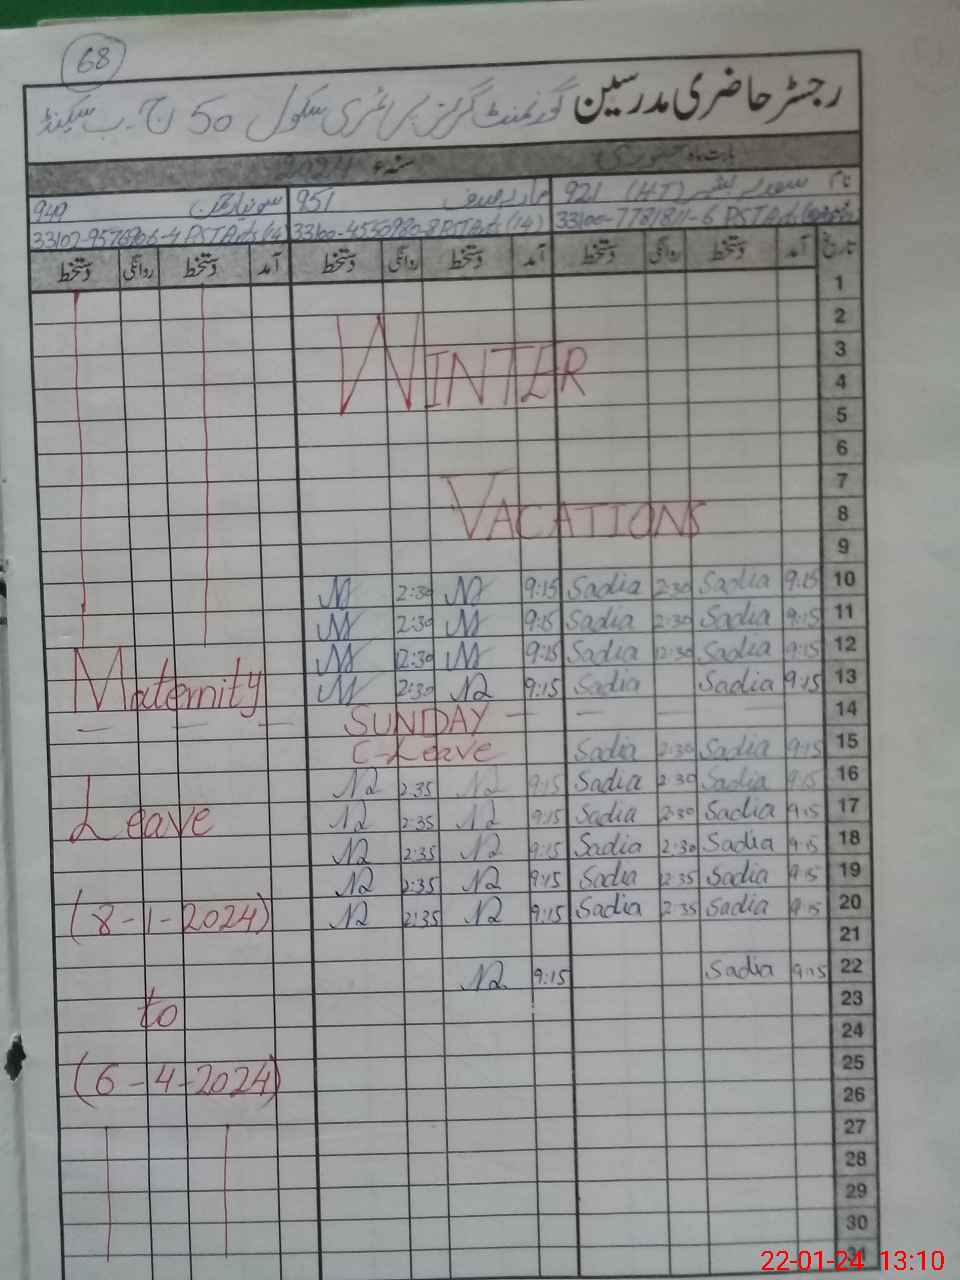 68
رجسٹر حاضری مدرسین گورنمنٹ گرلز پرائمری سکول 50 ج۔ب سیکنڈ
بابت ماہ جنوری سنہء 2024
نام 921 (HT) 951 949
PST Arts (14) PST Arts (14)
تاریخ آمد دستخط روانگی دستخط آمد دستخط روانگی دستخط آمد دستخط روانگی دستخط
1
2
WINTER
3
4
5
6
7
VACATIONS
8
9
10 9:15 Sadia 2:30 Sadia 9:15 2:30
11 9:15 Sadia 2:30 Sadia 9:15 2:30
12 9:15 Sadia 12:30 Sadia 9:15 2:30
13 9:15 Sadia Sadia 9:15 2:30
Maternity
14 SUNDAY
15 9:15 Sadia 2:30 Sadia C-Leave
16 9:15 Sadia 2:30 Sadia 9:15 2:35
17 9:15 Sadia 2:30 Sadia 9:15 2:35
Leave
18 9:15 Sadia 2:30 Sadia 9:15 2:35
19 9:15 Sadia 2:35 Sadia 9:15 2:35
20 9:15 Sadia 2:35 Sadia 9:15 2:35
(8-1-2024)
21
22 9:15 Sadia 9:15
23
to
24
25
(6-4-2024)
26
27
28
29
30
31
22-01-24 13:10